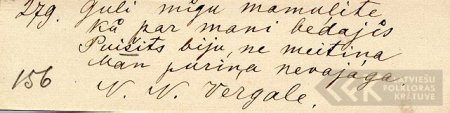 279. Guli mīgu mamulīte
kā par mani bēdajīs
Puišīts biju, ne meitiņa
Man pūriņa nevajaga
156 N. N. Vergale.
LATVIEŠU
FOLKLORAS
KRĀTUVE